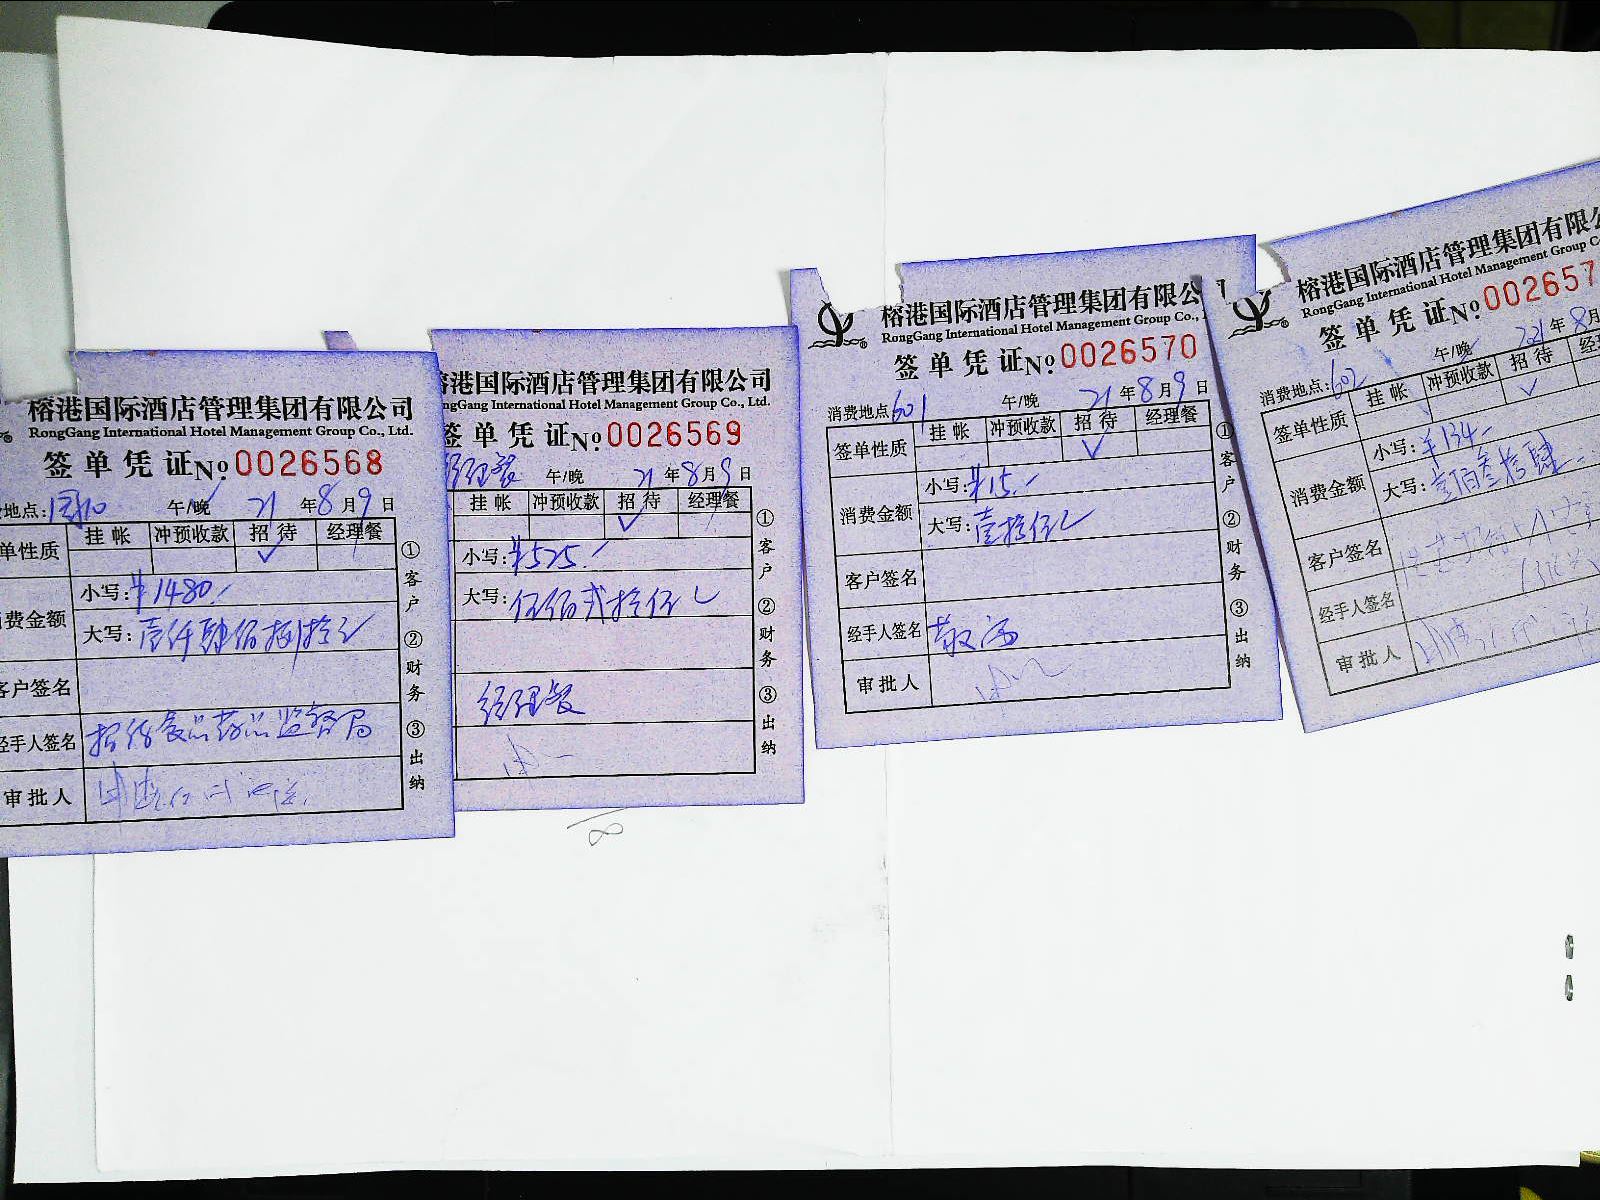 榕港国际酒店管理集团有限公司
RongGang International Hotel Management Group Co., Ltd.
签单凭证 No 0026568
地点: 午/晚 21年8月9日
单性质 挂帐 冲预收款 招待 经理餐
费金额 小写:¥1480.
大写:壹仟肆佰捌拾
客户签名
经手人签名 招待食品药品监督局
审批人
①客户 ②财务 ③出纳
榕港国际酒店管理集团有限公司
ngGang International Hotel Management Group Co., Ltd.
签单凭证 No 0026569
经理餐 午/晚 21年8月9日
挂帐 冲预收款 招待 经理餐
小写:¥525.
大写:伍佰贰拾伍
经理餐
①客户 ②财务 ③出纳
榕港国际酒店管理集团有限公
RongGang International Hotel Management Group Co.,
签单凭证 No 0026570
消费地点:601 午/晚 21年8月9日
签单性质 挂帐 冲预收款 招待 经理餐
消费金额 小写:¥15.
大写:壹拾伍
客户签名
经手人签名
审批人
①客户 ②财务 ③出纳
榕港国际酒店管理集团有限公
RongGang International Hotel Management Group C
签单凭证 No 002657
消费地点:602 午/晚 221年8月
签单性质 挂帐 冲预收款 招待 经
消费金额 小写:¥134.
大写:壹佰叁拾肆
客户签名
经手人签名
审批人